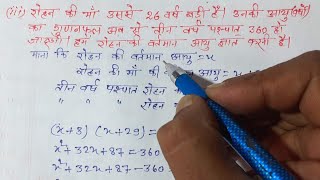 (iii) रोहन की माँ उससे 26 वर्ष बड़ी हैं। उनकी आयु (वर्षों)
का गुणनफल अब से तीन वर्ष पश्चात् 360 हो
जाएगी। हमें रोहन की वर्तमान आयु ज्ञात करनी है।
माना कि रोहन की वर्तमान आयु = x
रोहन की माँ की आयु = x
तीन वर्ष पश्चात रोहन
" " " रोहन
(x+3) (x+29) =
x²+32x+87 = 360
x²+32x+87-360